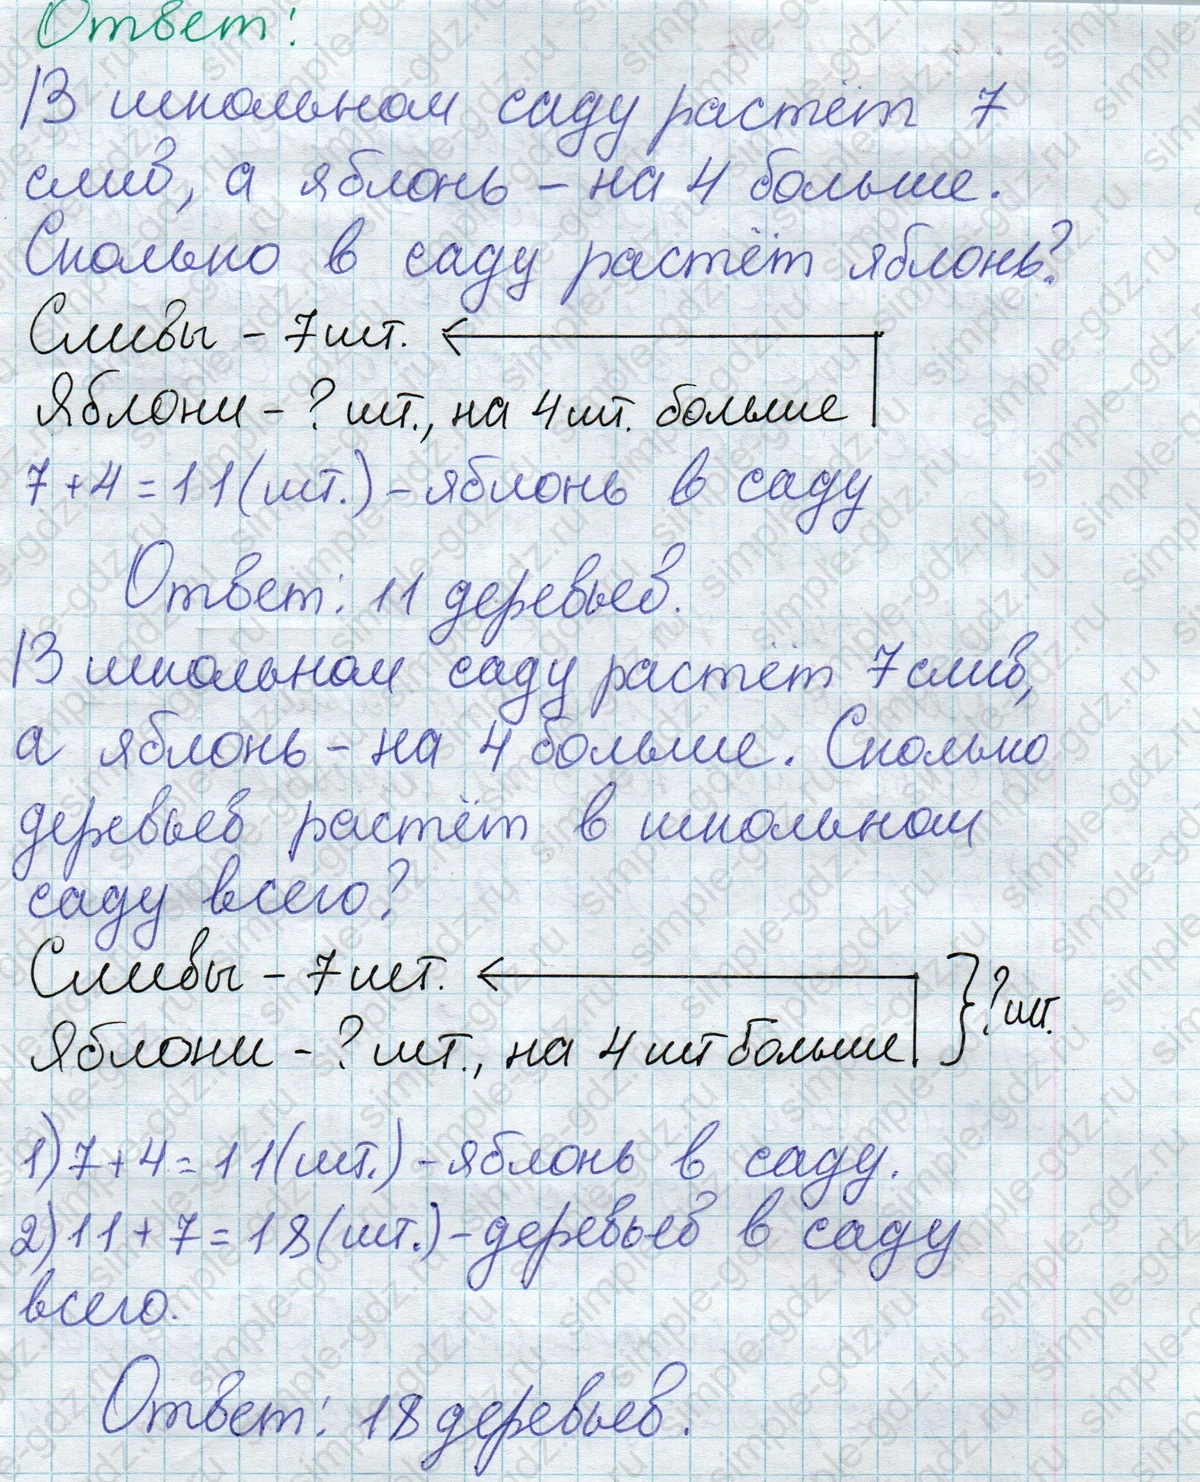 Ответ:
В школьном саду растёт 7
слив, а яблонь – на 4 больше.
Сколько в саду растёт яблонь?
Сливы – 7 шт.
Яблони – ? шт., на 4 шт. больше
7 + 4 = 11 (шт.) – яблонь в саду
Ответ: 11 деревьев.
В школьном саду растёт 7 слив,
а яблонь – на 4 больше. Сколько
деревьев растёт в школьном
саду всего?
Сливы – 7 шт.
Яблони – ? шт., на 4 шт больше
? шт.
1) 7 + 4 = 11 (шт.) – яблонь в саду.
2) 11 + 7 = 18 (шт.) – деревьев в саду
всего.
Ответ: 18 деревьев.
simple-gdz.ru